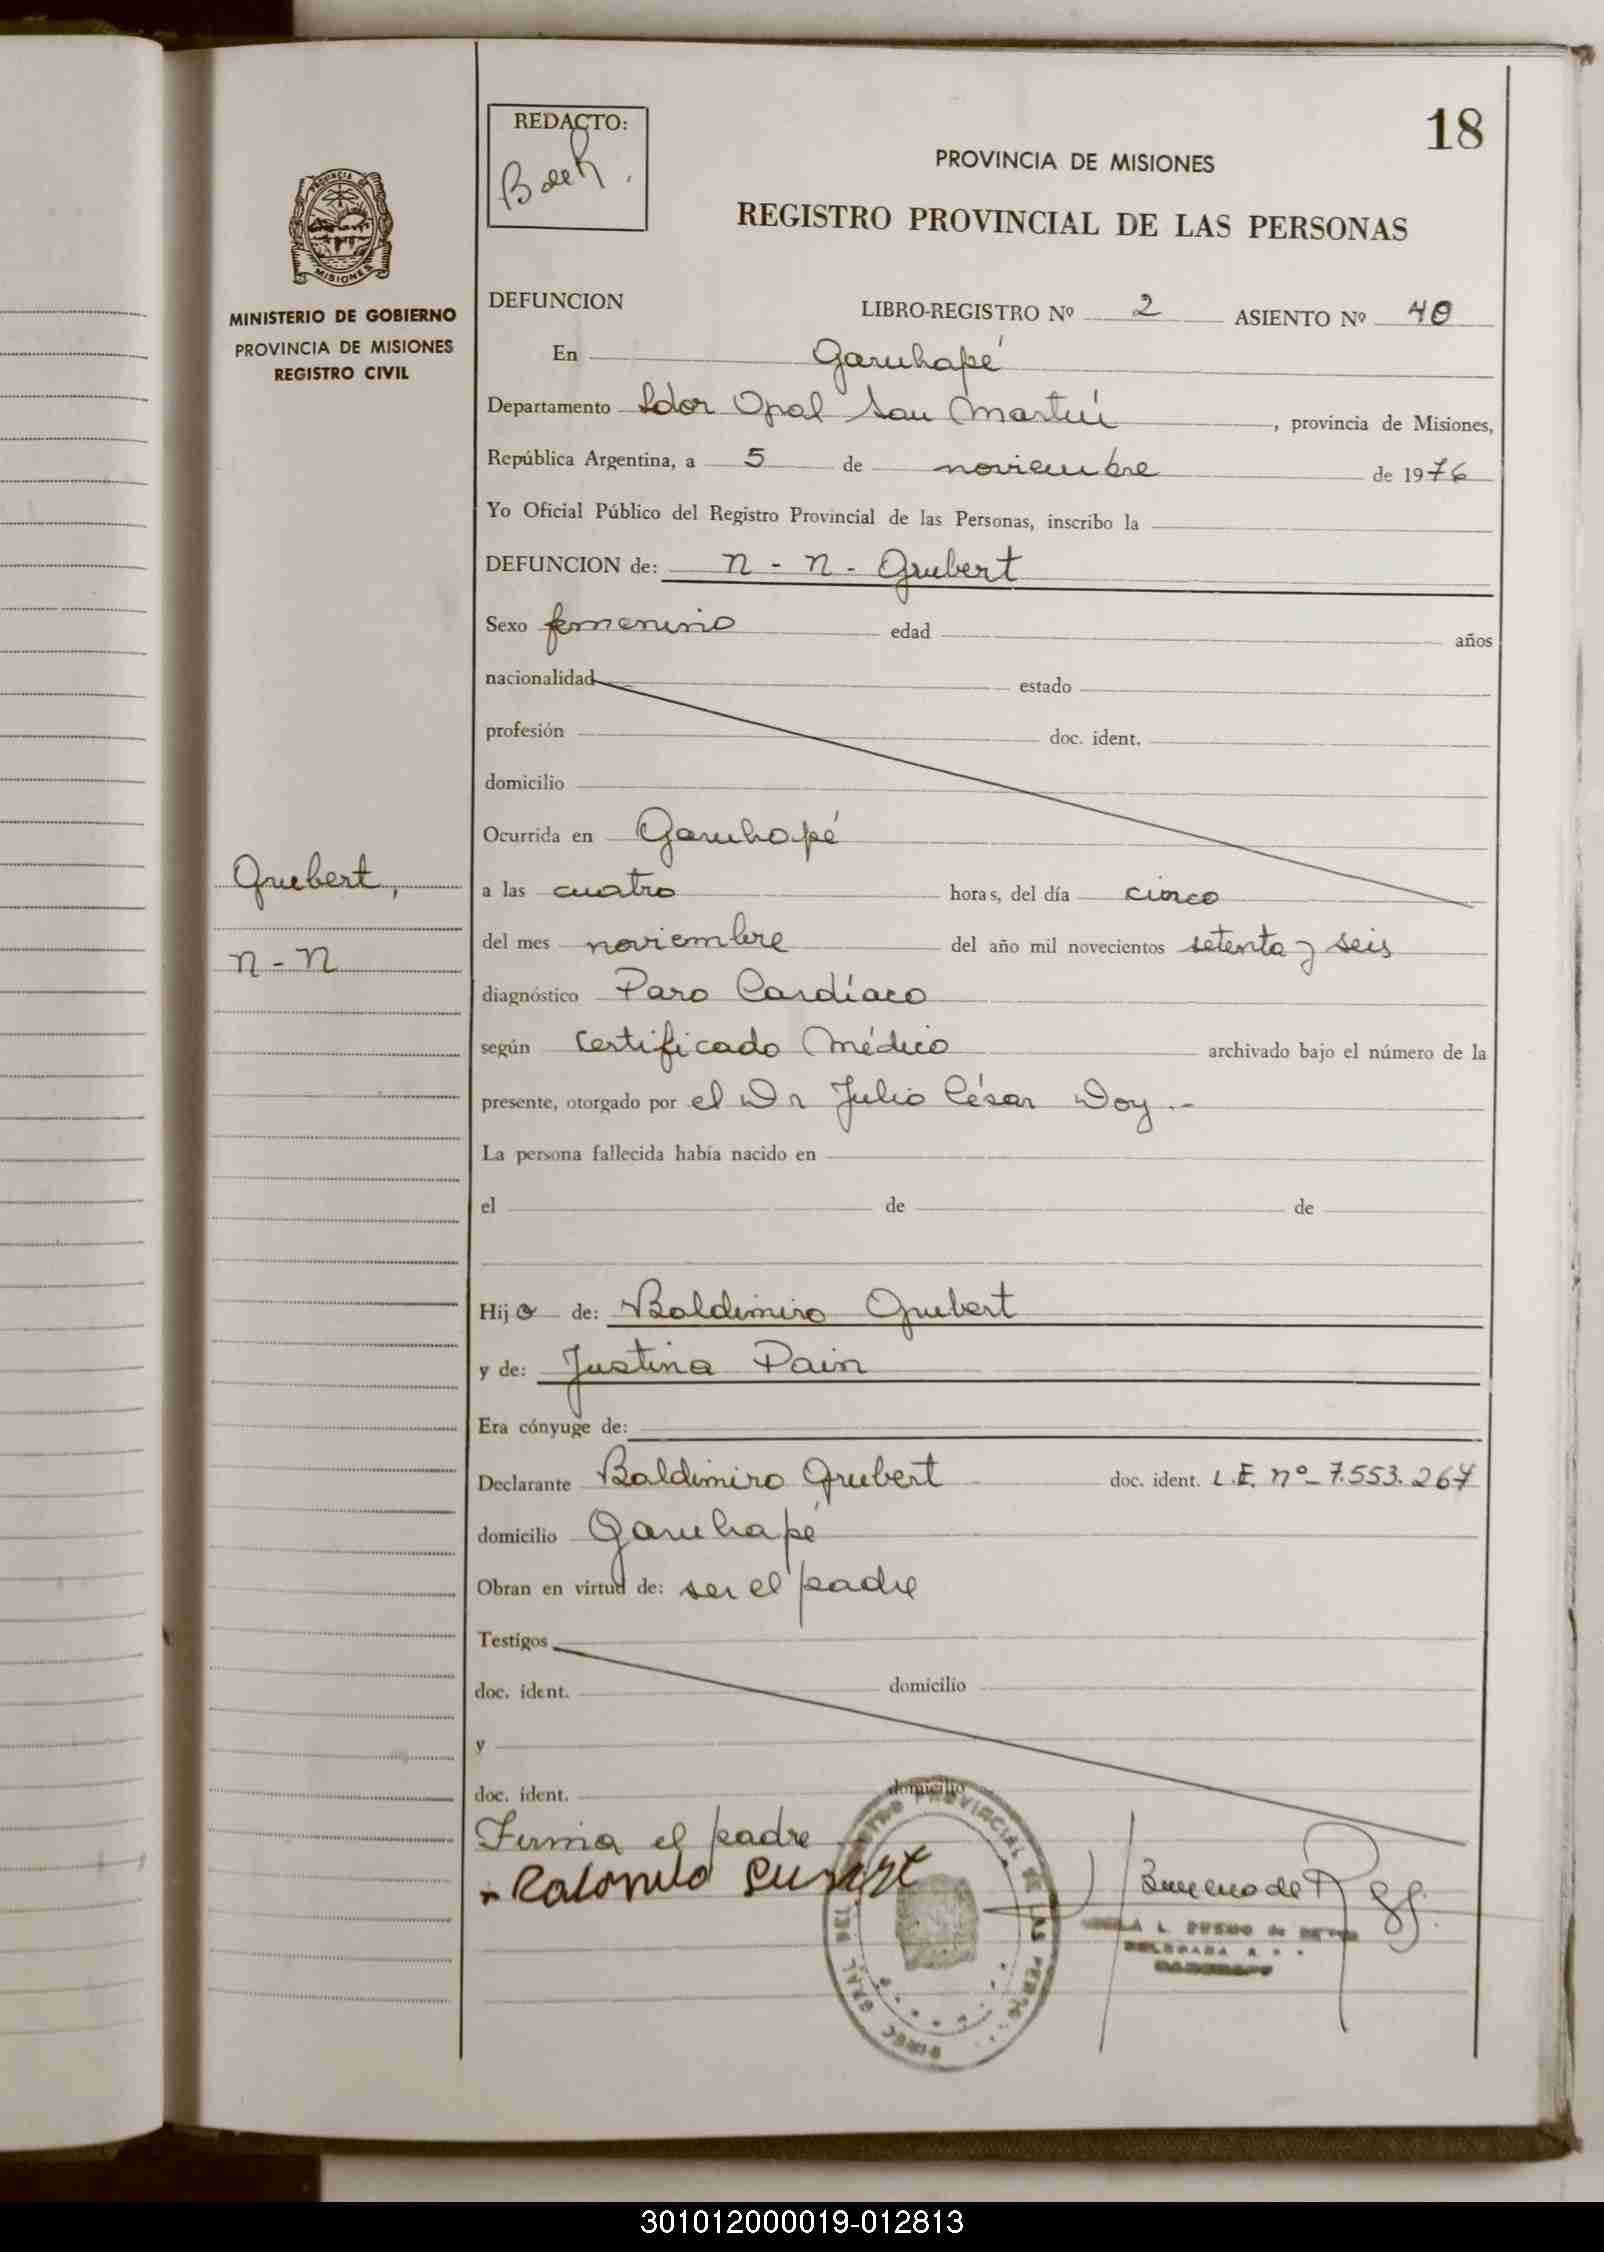 18
REDACTO:
Baek.
PROVINCIA DE MISIONES
REGISTRO PROVINCIAL DE LAS PERSONAS
PROVINCIA DE
MISIONES
MINISTERIO DE GOBIERNO
PROVINCIA DE MISIONES
REGISTRO CIVIL
DEFUNCION LIBRO-REGISTRO Nº 2 ASIENTO Nº 40
En Garuhapé
Departamento Ldor Gral San Martín, provincia de Misiones,
República Argentina, a 5 de noviembre de 1976
Yo Oficial Público del Registro Provincial de las Personas, inscribo la
DEFUNCION de: n - n - Grubert
Sexo femenino edad años
nacionalidad estado
profesión doc. ident.
domicilio
Ocurrida en Garuhapé
Grubert,
n - n
a las cuatro horas, del día cinco
del mes noviembre del año mil novecientos setenta y seis
diagnóstico Paro Cardíaco
según Certificado Médico archivado bajo el número de la
presente, otorgado por el Dr Julio César Doy.-
La persona fallecida había nacido en
el de de
Hija de: Baldimiro Grubert
y de: Justina Pain
Era cónyuge de:
Declarante Baldimiro Grubert doc. ident. L.E. nº 7.553.267
domicilio Garuhapé
Obran en virtud de: ser el padre
Testigos
doc. ident. domicilio
y
doc. ident. domicilio
Firma el padre
DIREC. GRAL. DEL REGISTRO PROVINCIAL DE LAS PERSO
301012000019-012813